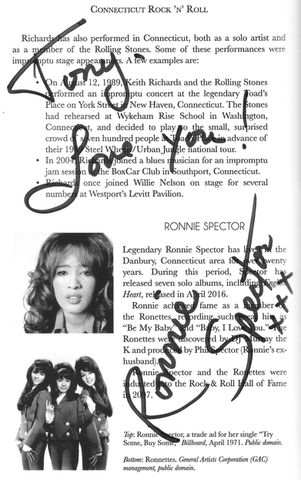 CONNECTICUT ROCK 'N' ROLL
Richards has also performed in Connecticut, both as a solo artist and
as a member of the Rolling Stones. Some of these performances were
impromptu stage appearances. A few examples are:
• On August 12, 1989, Keith Richards and the Rolling Stones
performed an impromptu concert at the legendary Toad's
Place on York Street, New Haven, Connecticut. The Stones
had rehearsed at Wykeham Rise School in Washington,
Connecticut, and decided to play to the small, surprised
crowd of seven hundred people in advance of
their 1989 Steel Wheels/Urban Jungle national tour.
• In 2004, Richards joined a blues musician for an impromptu
jam session at the BoxCar Club in Southport, Connecticut.
• Richards once joined Willie Nelson on stage for several
numbers at Westport's Levitt Pavilion.
Tony,
Love You!
RONNIE SPECTOR
Legendary Ronnie Spector has lived in the
Danbury, Connecticut area for over twenty
years. During this period, Spector has
released seven solo albums, including English
Heart, released in April 2016.
Ronnie achieved fame as a member of
the Ronettes, recording such great hits as
"Be My Baby" and "Baby, I Love You." The
Ronettes were discovered by DJ Murray the
K and produced by Phil Spector (Ronnie's ex-
husband).
Ronnie Spector and the Ronettes were
inducted into the Rock & Roll Hall of Fame
in 2007.
Ronnie
Spector
xxx
Top: Ronnie Spector, a trade ad for her single "Try
Some, Buy Some," Billboard, April 1971. Public domain.
Bottom: Ronnettes. General Artists Corporation (GAC)
management, public domain.